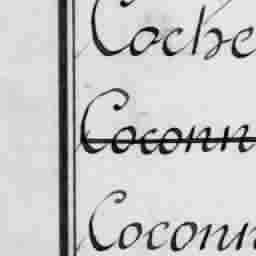 Coche
Coconn
Coconn